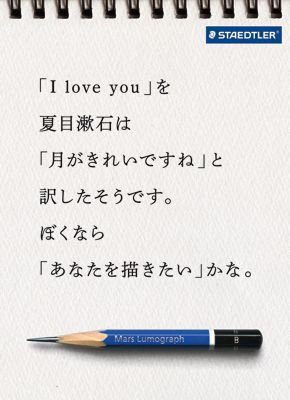 STAEDTLER
「I love you」を
夏目漱石は
「月がきれいですね」と
訳したそうです。
ぼくなら
「あなたを描きたい」かな。
Mars Lumograph
B